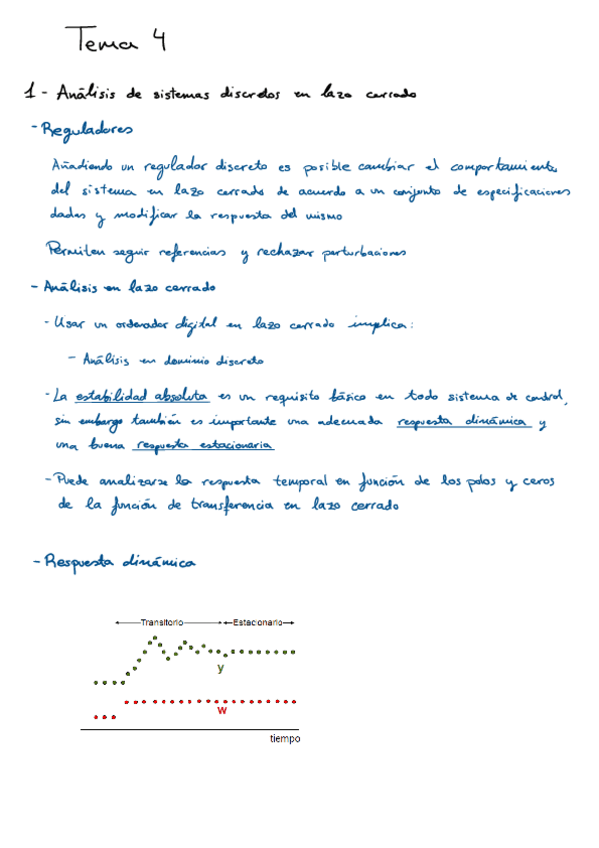 Tema 4
1 - Análisis de sistemas discretos en lazo cerrado
- Reguladores
Añadiendo un regulador discreto es posible cambiar el comportamiento
del sistema en lazo cerrado de acuerdo a un conjunto de especificaciones
dadas y modificar la respuesta del mismo
Permiten seguir referencias y rechazar perturbaciones
- Análisis en lazo cerrado
- Usar un ordenador digital en lazo cerrado implica:
- Análisis en dominio discreto
- La estabilidad absoluta es un requisito básico en todo sistema de control,
sin embargo también es importante una adecuada respuesta dinámica y
una buena respuesta estacionaria
- Puede analizarse la respuesta temporal en función de los polos y ceros
de la función de transferencia en lazo cerrado
- Respuesta dinámica
Transitorio Estacionario
y
w
tiempo